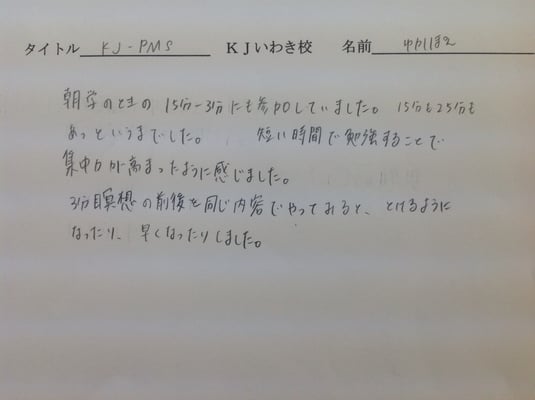 タイトル KJ-PMS KJいわき校 名前
朝学のときの15分-3分にも参加していました。15分も25分も
あっというまでした。 短い時間で勉強することで
集中力が高まったように感じました。
3分瞑想の前後を同じ内容でやってみると、とけるように
なったり、早くなったりしました。